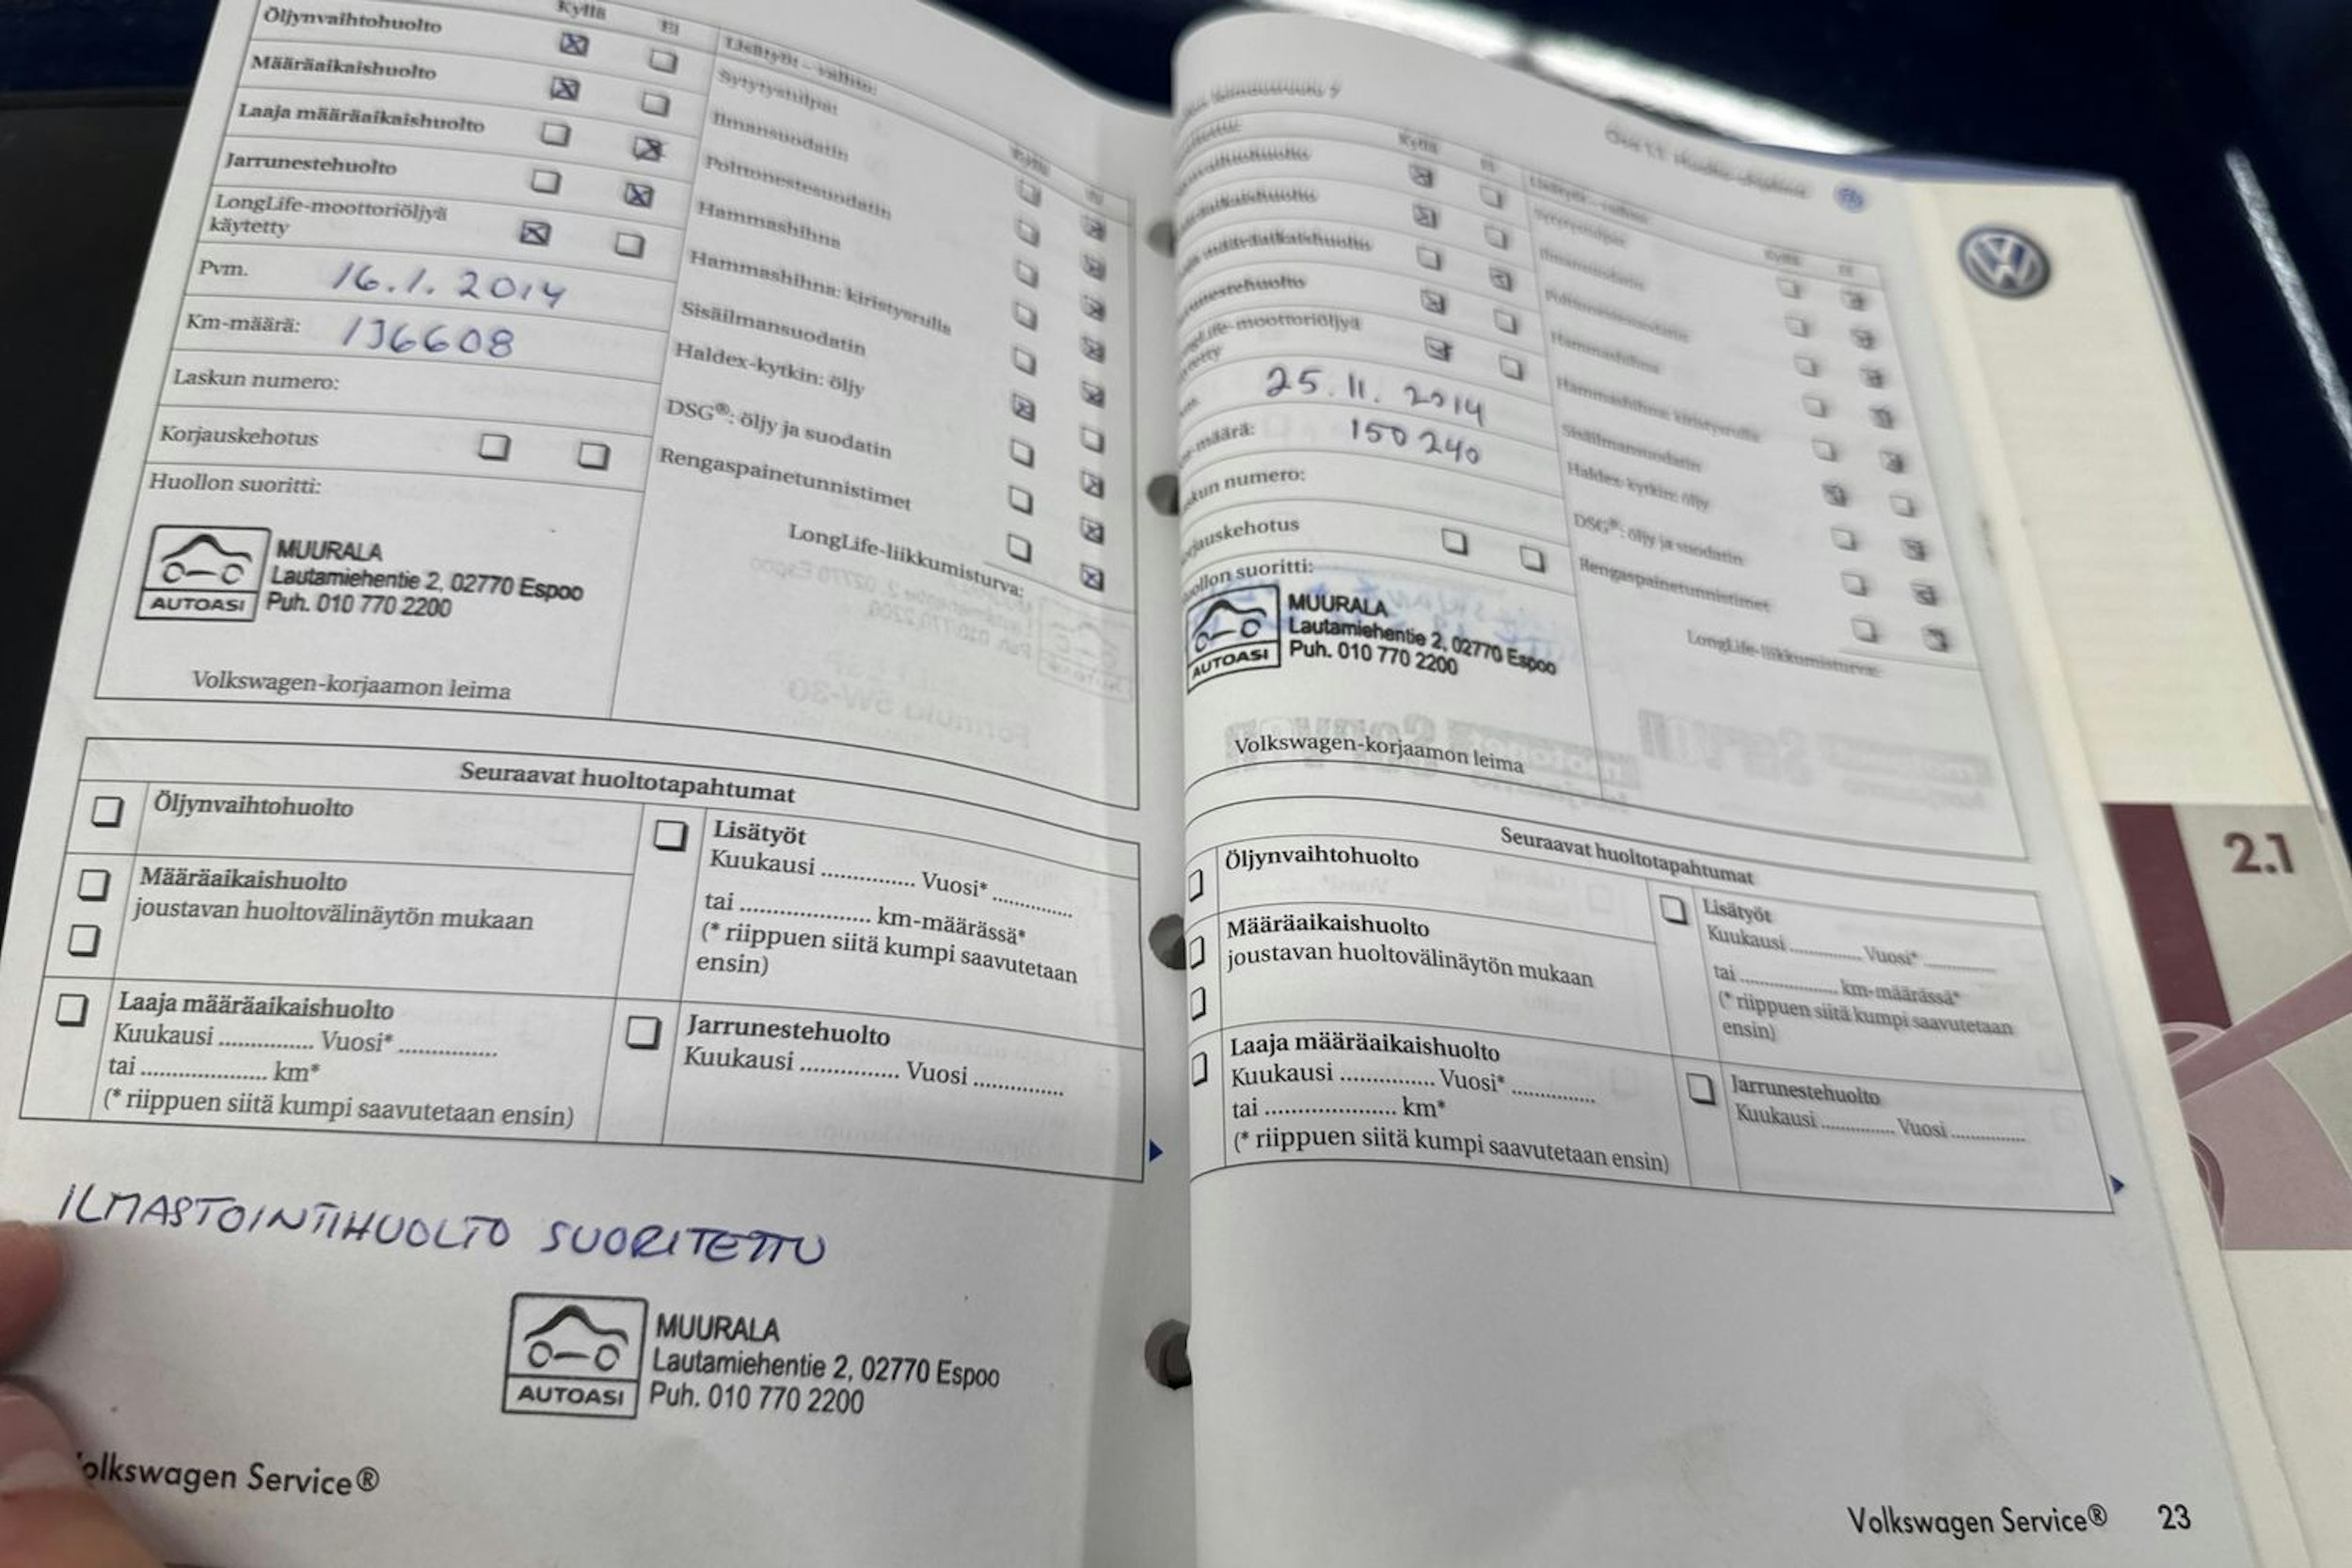 Kyllä Ei
Öljynvaihtohuolto
Määräaikaishuolto
Laaja määräaikaishuolto
Jarrunestehuolto
LongLife-moottoriöljyä
käytetty
Pvm. 16.1.2014
Km-määrä: 136608
Laskun numero:
Korjauskehotus
Huollon suoritti:
MUURALA
Lautamiehentie 2, 02770 Espoo
AUTOASI Puh. 010 770 2200
Volkswagen-korjaamon leima
Lisätyöt
Sytytystulpat
Ilmansuodatin
Polttonestesuodatin
Hammashihna
Hammashihna: kiristysrulla
Sisäilmansuodatin
Haldex-kytkin: öljy
DSG®: öljy ja suodatin
Rengaspainetunnistimet
LongLife-liikkumisturva:
Seuraavat huoltotapahtumat
Öljynvaihtohuolto
Määräaikaishuolto
joustavan huoltovälinäytön mukaan
Laaja määräaikaishuolto
Kuukausi ............... Vuosi* ...............
tai .................... km*
(* riippuen siitä kumpi saavutetaan ensin)
Lisätyöt
Kuukausi ............... Vuosi* ...............
tai .................... km-määrässä*
(* riippuen siitä kumpi saavutetaan
ensin)
Jarrunestehuolto
Kuukausi ............... Vuosi ...............
ILMASTOINTIHUOLTO SUORITETTU
MUURALA
Lautamiehentie 2, 02770 Espoo
AUTOASI Puh. 010 770 2200
olkswagen Service®
Kyllä
25.11.2014
määrä: 150 240
kun numero:
jauskehotus
ollon suoritti:
MUURALA
Lautamiehentie 2, 02770 Espoo
AUTOASI Puh. 010 770 2200
Volkswagen-korjaamon leima
Hammashihna
Hammashihna: kiristysrulla
Sisäilmansuodatin
Haldex-kytkin: öljy
DSG®: öljy ja suodatin
Rengaspainetunnistimet
LongLife-liikkumisturva:
Seuraavat huoltotapahtumat
Öljynvaihtohuolto
Määräaikaishuolto
joustavan huoltovälinäytön mukaan
Laaja määräaikaishuolto
Kuukausi ............... Vuosi* ...............
tai .................... km*
(* riippuen siitä kumpi saavutetaan ensin)
Lisätyöt
Kuukausi ............... Vuosi* ...............
tai .................... km-määrässä*
(* riippuen siitä kumpi saavutetaan
ensin)
Jarrunestehuolto
Kuukausi ............... Vuosi ...............
Volkswagen Service® 23
2.1